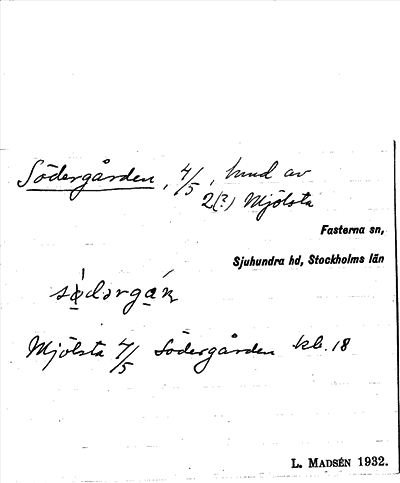 Södergården, 4/5, hmd av
2(?) Mjölsta
Fasterna sn,
Sjuhundra hd, Stockholms län
Mjölsta 4/5 Södergården kb. 18
L. MADSÉN 1932.